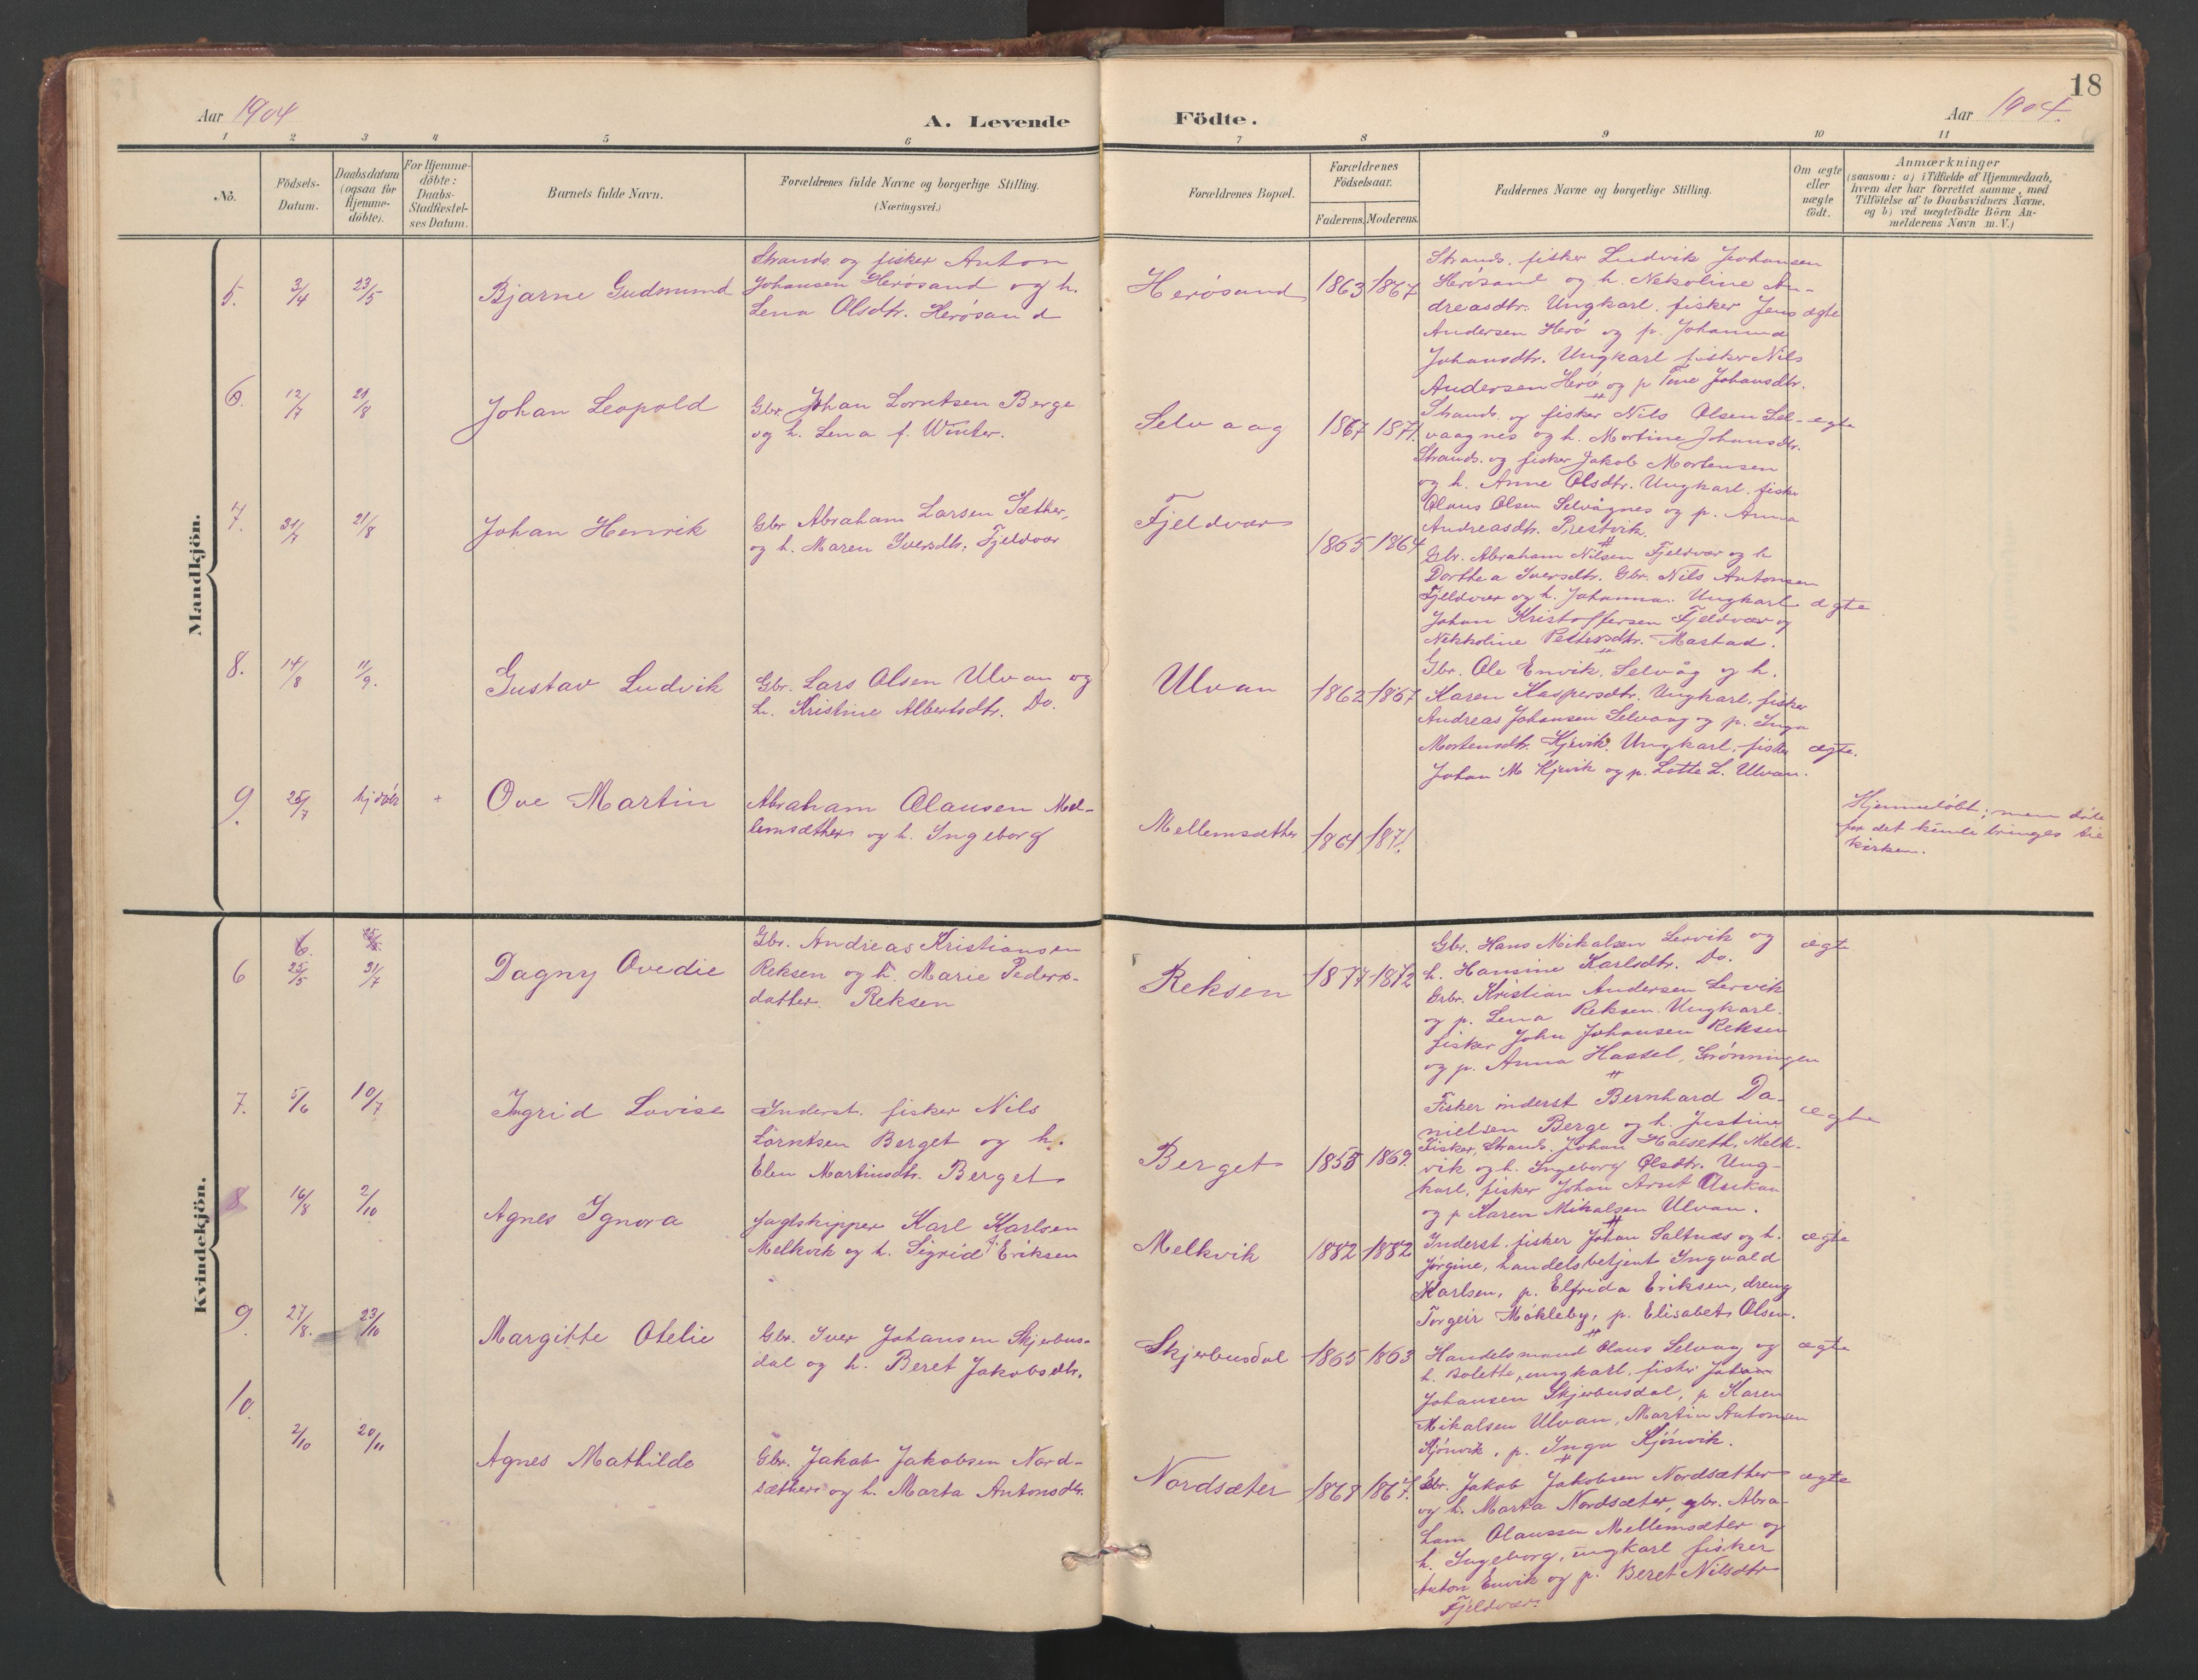 18
Aar 1904
A. Levende
Födte.
Aar 1904.
1 2 3 4 5 6 7 8 9 10 11
No.
Födsels-
Datum.
Daabsdatum
(ogsaa for
Hjemme-
döbte).
For Hjemme-
döbte:
Daabs-
Stadfæstel-
ses Datum.
Barnets fulde Navn.
Forældrenes fulde Navne og borgerlige Stilling.
(Næringsvei.)
Forældrenes Bopæl.
Forældrenes
Födselsaar.
Faderens. Moderens.
Faddernes Navne og borgerlige Stilling.
Om ægte
eller
uægte
födt.
Anmærkninger
(saasom: a) i Tilfælde af Hjemmedaab,
hvem der har forrettet samme, med
Tilföielse af to Daabsvidners Navne.
og b) ved uægtefödte Börn An-
melderens Navn m. V.)
Mandkjön.
5. 3/4 23/5 Bjarne Gudmund
Strands. og fisker Anton
Johansen Herøsand og h.
Lena Olsdtr. Herøsand
Herøsand 1863 1867
Strands. fisker Ludvik Johansen
Herøsand og h. Nekoline An-
dreasdtr. Ungkarl. fisker Jens ægte
Andersen Herø og p. Johanna
Johansdtr. Ungkarl fisker Nils
Andersen Herø og p Tine Johansdtr.
6. 12/7 21/8 Johan Leopold
Gbr. Johan Lorntsen Berge
og h. Lena f. Winter.
Selvaag 1867 1871.
Strands. og fisker Nils Olsen Sel- ægte
vaagnes og h. Martine Johansdtr.
Strands. og fisker Jakob Mortensen
og h. Anne Olsdtr. Ungkarl. fisker
Olaus Olsen Selvågnes og p. Anna
Andreasdtr. Prestvik.
7. 31/7 21/8 Johan Henrik
Gbr Abraham Larsen Sæther,
og h. Maren Iversdtr. Fjeldvær
Fjeldvær 1865 1864
Gbr. Abraham Nilsen Fjeldvær og h
Dorthea Iversdtr. Gbr. Nils Antonsen
Fjeldvær og h. Johanna. Ungkarl ægte
Johan Kristoffersen Fjeldvær og
Nekkoline Pettersdtr. Mastad.
8. 14/8 11/9. Gustav Ludvik
Gbr. Lars Olsen Ulvan og
h. Kristine Albertsdtr. Do.
Ulvan 1862 1867
Gbr. Ole Envik, Selvåg og h.
Karen Kaspersdtr. Ungkarl, fisker
Andreas Johansen Selvaag og p. Inga
Mortensdtr. Kjevik. Ungkarl, fisker ægte.
Johan M Kjevik og p. Lotte L. Ulvan.
9. 25/7 hjdøbt + Ove Martin
Abraham Olausen Mel-
lemsæther og h. Ingeborg
Mellemsæther 1864 1871.
Hjemmedøbt; men døde
før det kunde bringes til
kirken.
Kvindekjön.
6 25/5 31/7 Dagny Ovedie
Gbr. Andreas Kristiansen
Reksen og h. Marie Peders-
datter Reksen
Reksen 1877 1872
Gbr. Hans Mikalsen Lervik og ægte
h. Hansine Karlsdtr. Do.
Gbr. Kristian Andersen Lervik
og p. Lena Reksen. Ungkarl.
fisker John Johansen Reksen
og p. Anna Hassel, Grønningen
7. 5/6 10/7 Ingrid Lovise
Inderst. fisker Nils
Lorntsen Berget og h.
Elen Martinsdtr. Berget
Berget 1858 1869.
Fisker inderst Bernhard Da- ægte
nielsen Berge og h. Justine
Fisker, Strands. Johan Halseth, Melk-
vik og h. Ingeborg Olsdtr. Ung-
karl, fisker Johan Arnt Aukan
og p Karen Mikalsen Ulvan.
8 16/8 2/10 Agnes Ignora
Jagtskipper Karl Karlsen
Melkvik og h. Sigrid f. Eriksen
Melkvik 1882 1882
Inderst. fisker Johan Saltnes og h. ægte
Jørgine, handelsbetjent Ingvald
Karlsen, p. Elfrida Eriksen, dreng
Torgeir Møkleby, p. Elisabet Olsen.
9. 27/8. 23/10 Margitte Otelie
Gbr. Iver Johansen Skjerbus-
dal og h. Beret Jakobsdtr.
Skjerbusdal 1865 1863
Handelsmand Olaus Selvaag og ægte
h. Bolette, ungkarl. fisker Johan
Johansen Skjerbusdal, p Karen
Mikalsen Ulvan, Martin Antonsen
Kjønvik, p. Inga Kjønvik.
10. 2/10 20/11 Agnes Mathilde
Gbr. Jakob Jakobsen Nord-
sæther og h. Marta Antonsdtr.
Nordsæter 1868 1867.
Gbr. Jakob Jakobsen Nordsæther ægte
og h. Marta Nordsæter, gbr. Abra-
ham Olaussen Mellemsæter og
h. Ingeborg, ungkarl fisker
Anton Envik og p. Beret Nilsdtr
Fjeldvær.